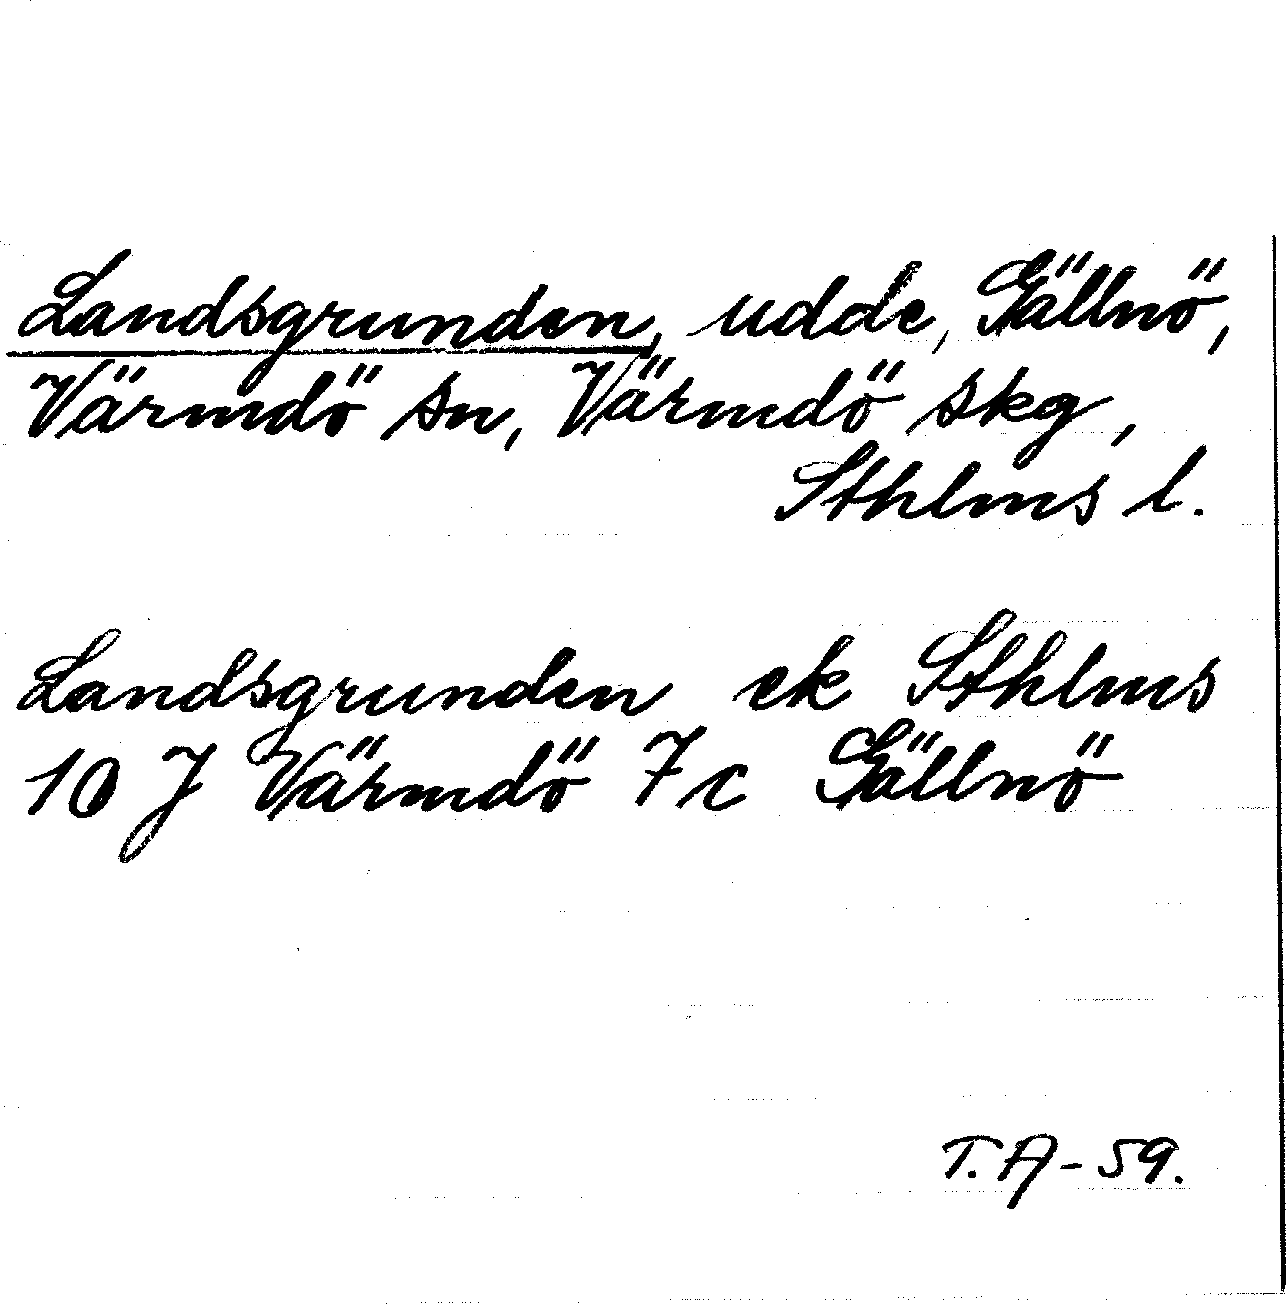 Landsgrunden, udde, Gällnö,
Värmdö sn, Värmdö skg,
Sthlms l.
Landsgrunden ek Sthlms
10 J Värmdö 7c Gällnö
T.A-59.